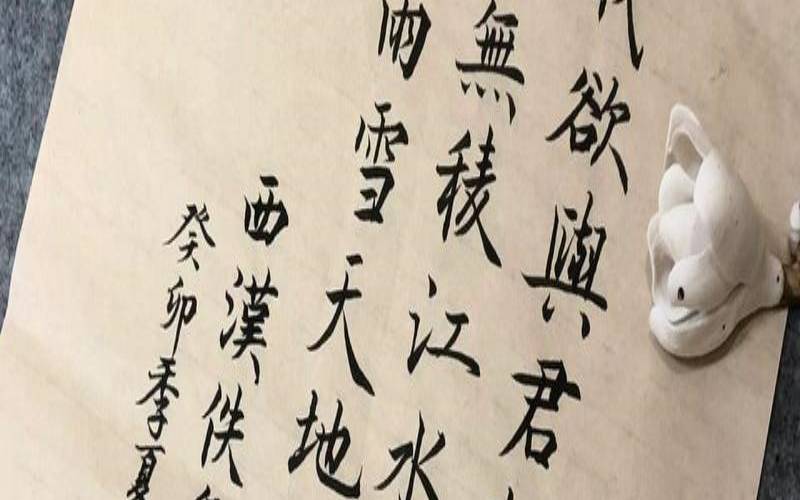 欲與君
無稜江水
雨雪天地
西漢佚
癸卯季夏